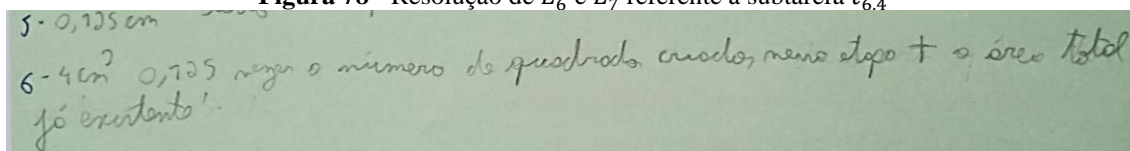 Figura 78 - Resolução de E₆ e E₇ referente à subtarefa t₆.₄
5 - 0,125 cm
6 - 4cm² 0,125 vezes o número de quadrado criado, nessa etapa + a área total
já existente'.